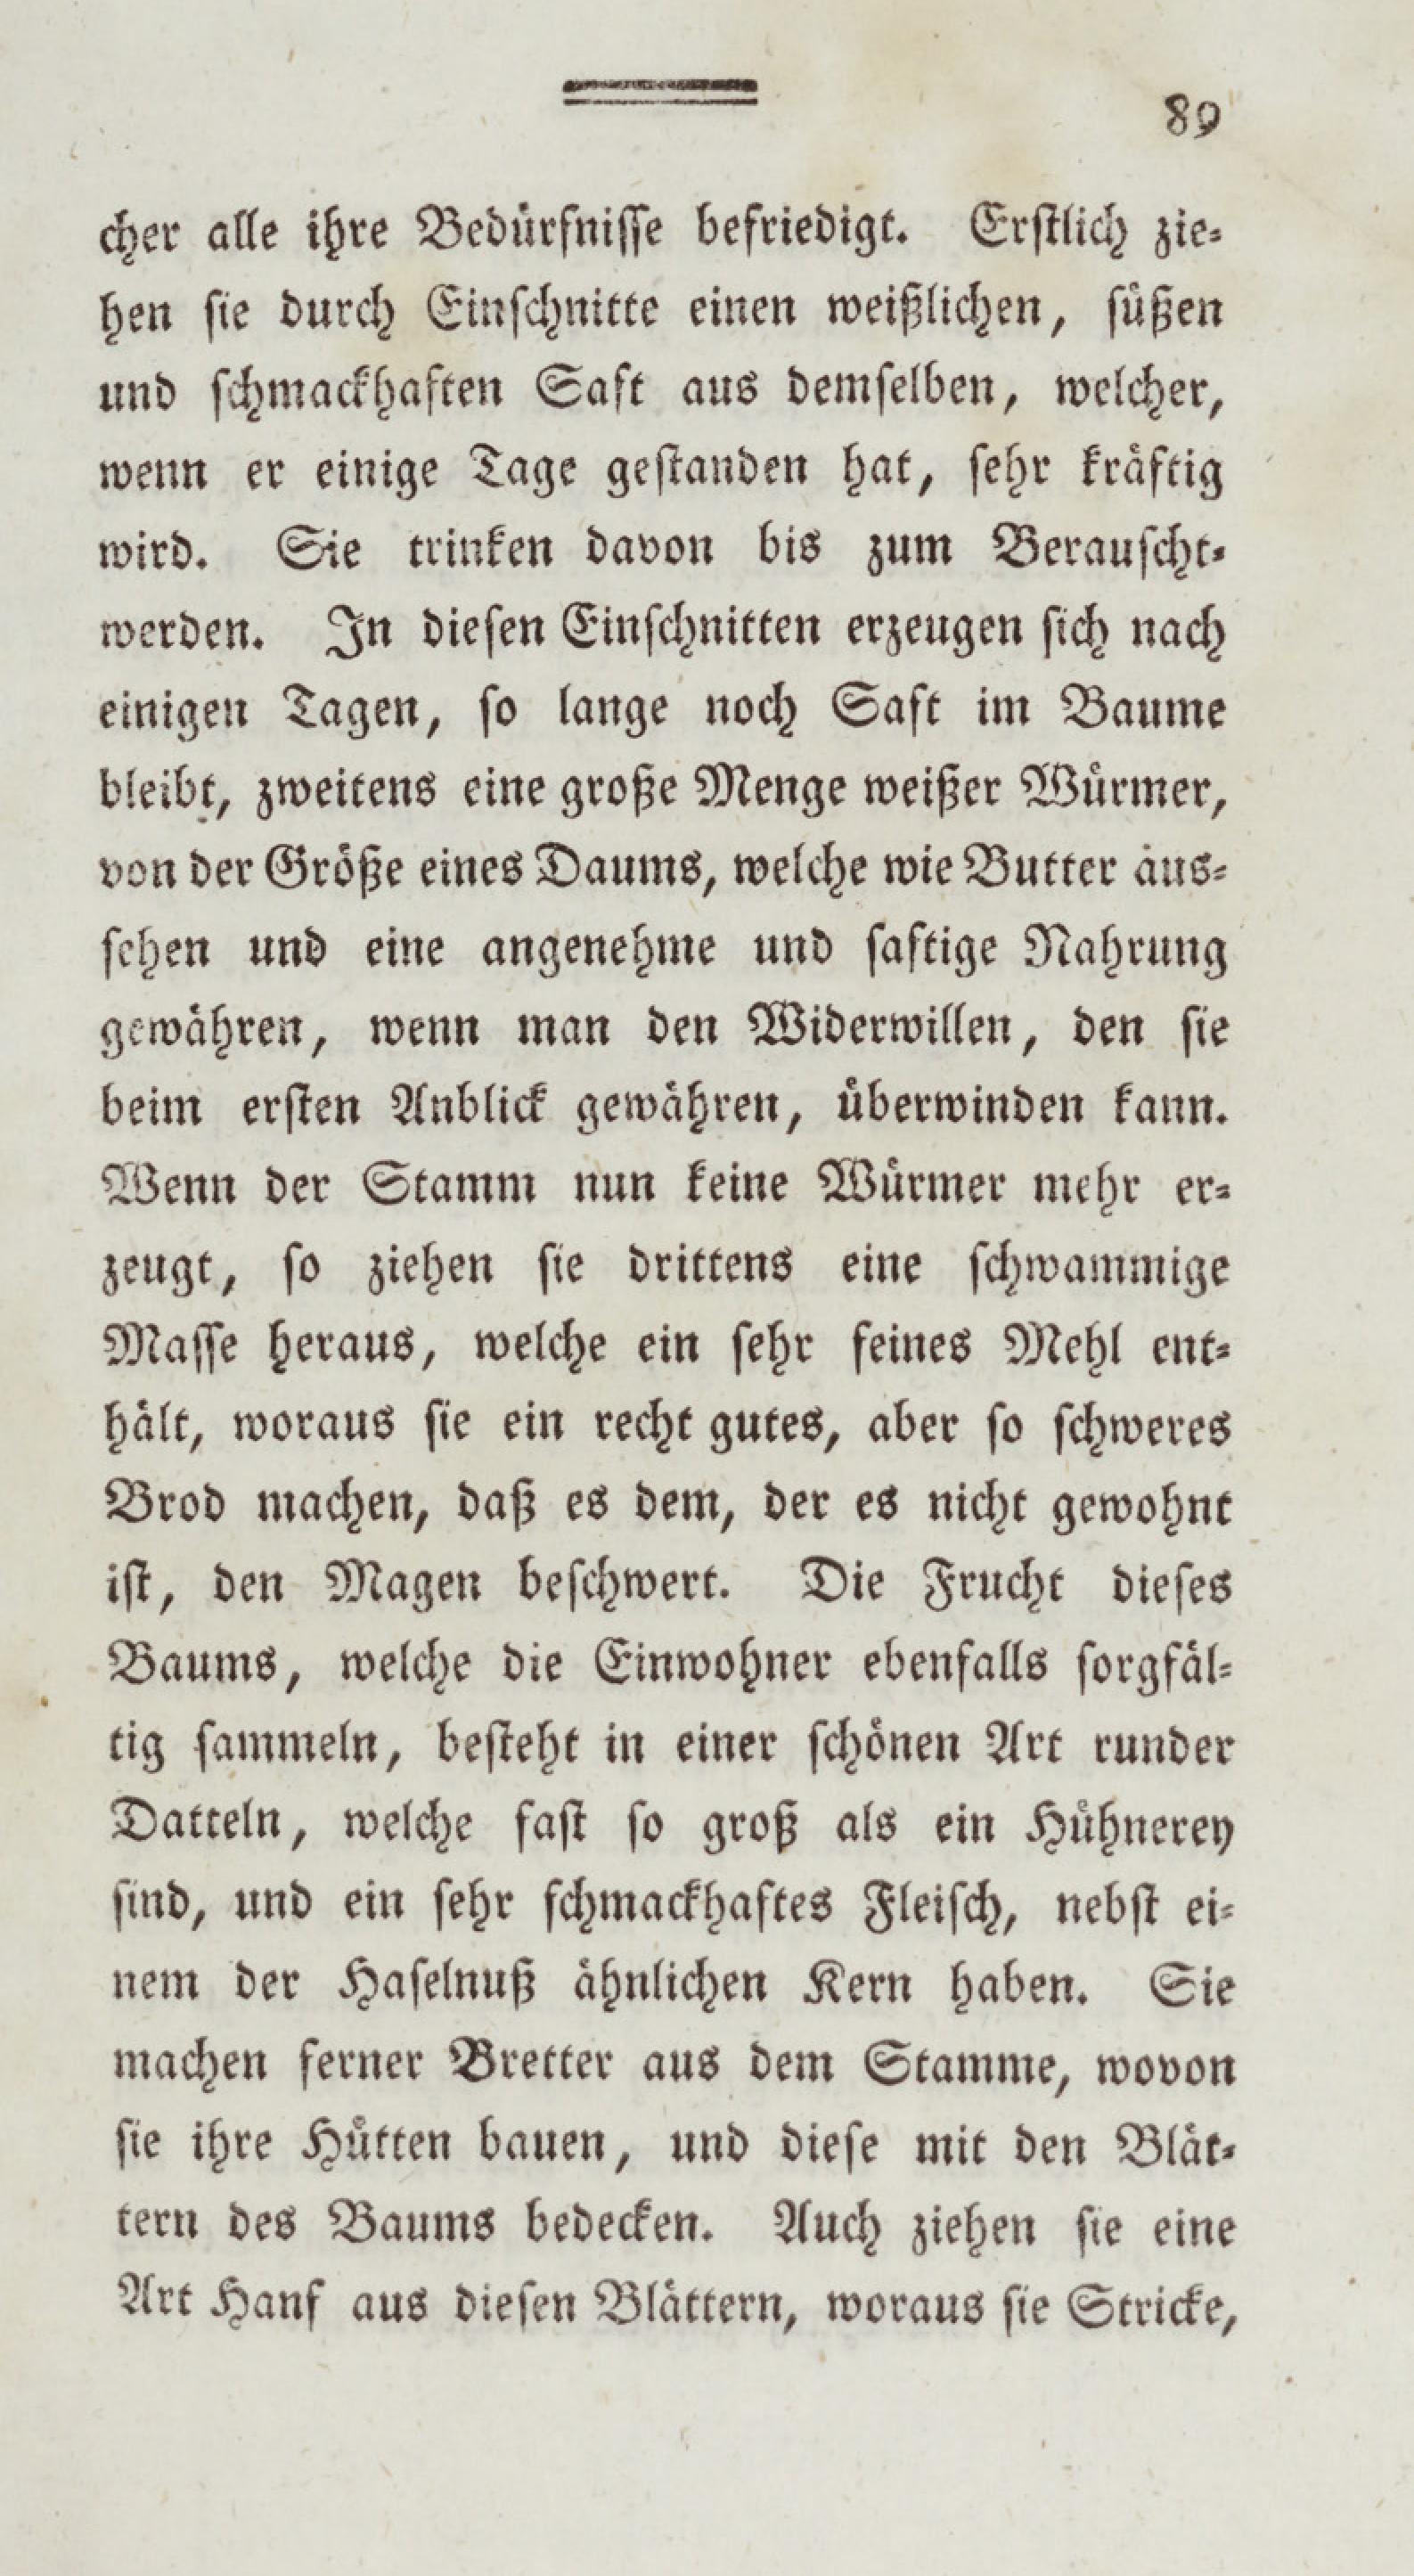 89
cher alle ihre Bedürfnisse befriedigt. Erstlich zie-
hen sie durch Einschnitte einen weißlichen, süßen
und schmackhaften Saft aus demselben, welcher,
wenn er einige Tage gestanden hat, sehr kräftig
wird. Sie trinken davon bis zum Berauscht-
werden. In diesen Einschnitten erzeugen sich nach
einigen Tagen, so lange noch Saft im Baume
bleibt, zweitens eine große Menge weißer Würmer,
von der Größe eines Daums, welche wie Butter aus-
sehen und eine angenehme und saftige Nahrung
gewähren, wenn man den Widerwillen, den sie
beim ersten Anblick gewähren, überwinden kann.
Wenn der Stamm nun keine Würmer mehr er-
zeugt, so ziehen sie drittens eine schwammige
Masse heraus, welche ein sehr feines Mehl ent-
hält, woraus sie ein recht gutes, aber so schweres
Brod machen, daß es dem, der es nicht gewohnt
ist, den Magen beschwert. Die Frucht dieses
Baums, welche die Einwohner ebenfalls sorgfäl-
tig sammeln, besteht in einer schönen Art runder
Datteln, welche fast so groß als ein Hühnerey
sind, und ein sehr schmackhaftes Fleisch, nebst ei-
nem der Haselnuß ähnlichen Kern haben. Sie
machen ferner Bretter aus dem Stamme, wovon
sie ihre Hütten bauen, und diese mit den Blät-
tern des Baums bedecken. Auch ziehen sie eine
Art Hanf aus diesen Blättern, woraus sie Stricke,